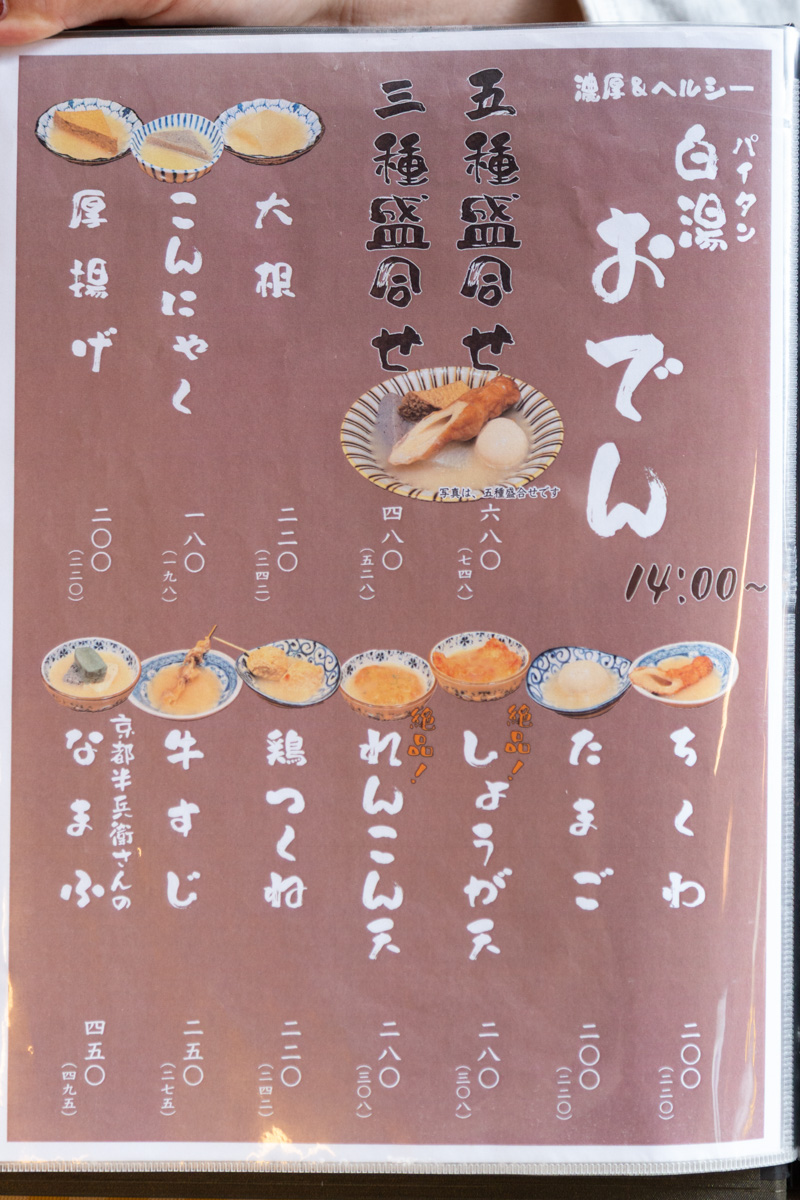 濃厚&ヘルシー
パイタン
白湯
おでん
14:00~
五種盛合せ
六八〇
(七四八)
三種盛合せ
四八〇
(五二八)
写真は、五種盛合せです
大根
二二〇
(二四二)
こんにゃく
一八〇
(一九八)
厚揚げ
二〇〇
(二二〇)
ちくわ
二〇〇
(二二〇)
たまご
二〇〇
(二二〇)
絶品!
しょうが天
二八〇
(三〇八)
絶品!
れんこん天
二八〇
(三〇八)
鶏つくね
二二〇
(二四二)
牛すじ
二五〇
(二七五)
京都半兵衛さんの
なまふ
四五〇
(四九五)